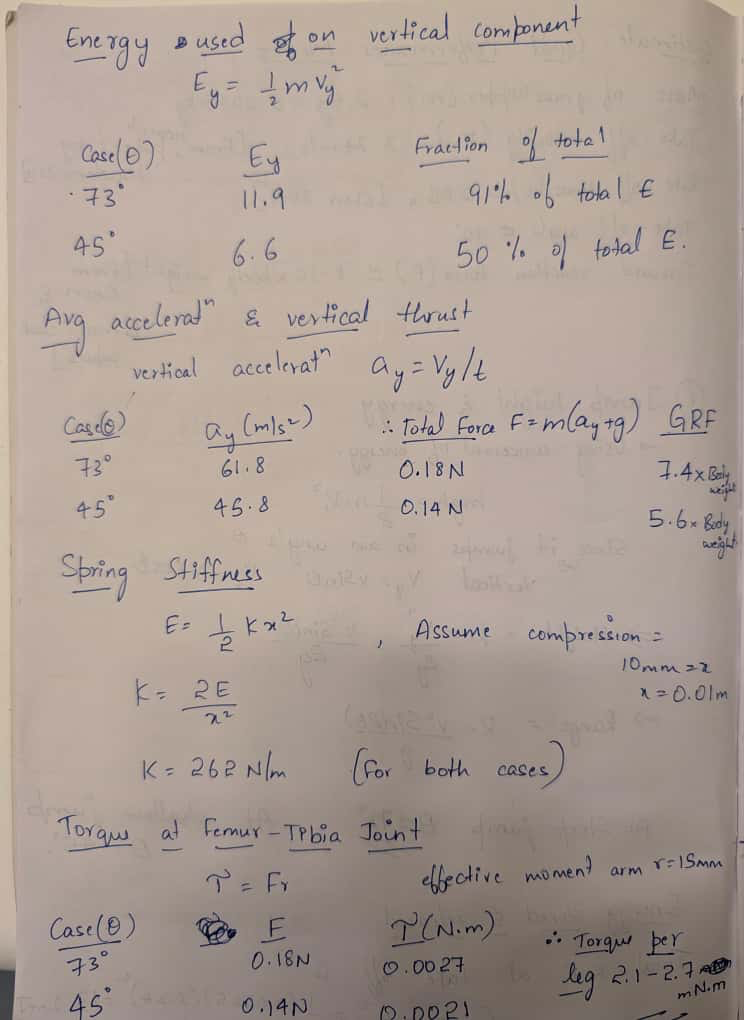 Energy used on vertical component
Ey = 1/2 m Vy²
Case(θ) Ey Fraction of total
73° 11.9 91% of total E
45° 6.6 50 % of total E.
Avg acceleratⁿ & vertical thrust
vertical acceleratⁿ ay = Vy/t
Case(θ) ay (m/s²) ∴ Total Force F = m(ay+g) GRF
73° 61.8 0.18N 7.4 x Body weight
45° 45.8 0.14 N 5.6 x Body weight
Spring Stiffness
E = 1/2 K x² , Assume compression =
10mm = x
x = 0.01m
K = 2E/x²
K = 262 N/m (for both cases)
Torque at Femur - Tibia Joint
τ = Fr effective moment arm r = 15mm
Case(θ) F τ (N.m) ∴ Torque per
73° 0.18N 0.0027 leg 2.1 - 2.7 mN.m
45° 0.14N 0.0021